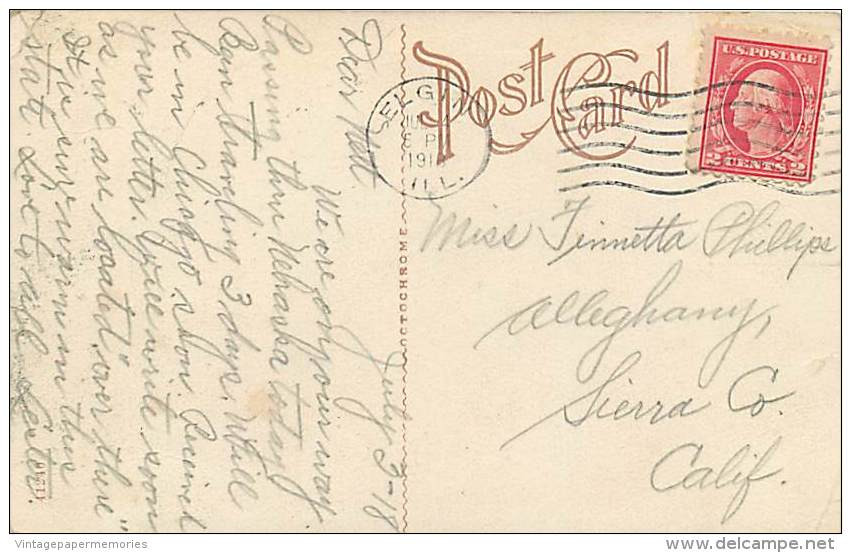 Post Card
U.S. POSTAGE
2 CENTS 2
ELGIN
8 P
191
ILL.
OCTOCHROME
Miss Tinnetta Phillips
Alleghany,
Sierra Co.
Calif.
July 3-18
Dear Nett
We are on our way
Passing thru Nebraska today
Been traveling 3 days. Will
be in Chicago soon. Received
your letter. Will write soon
as we are located "over there"
It is sure warm in this
state. Love to all
Vintagepapermemories
delcampe.net